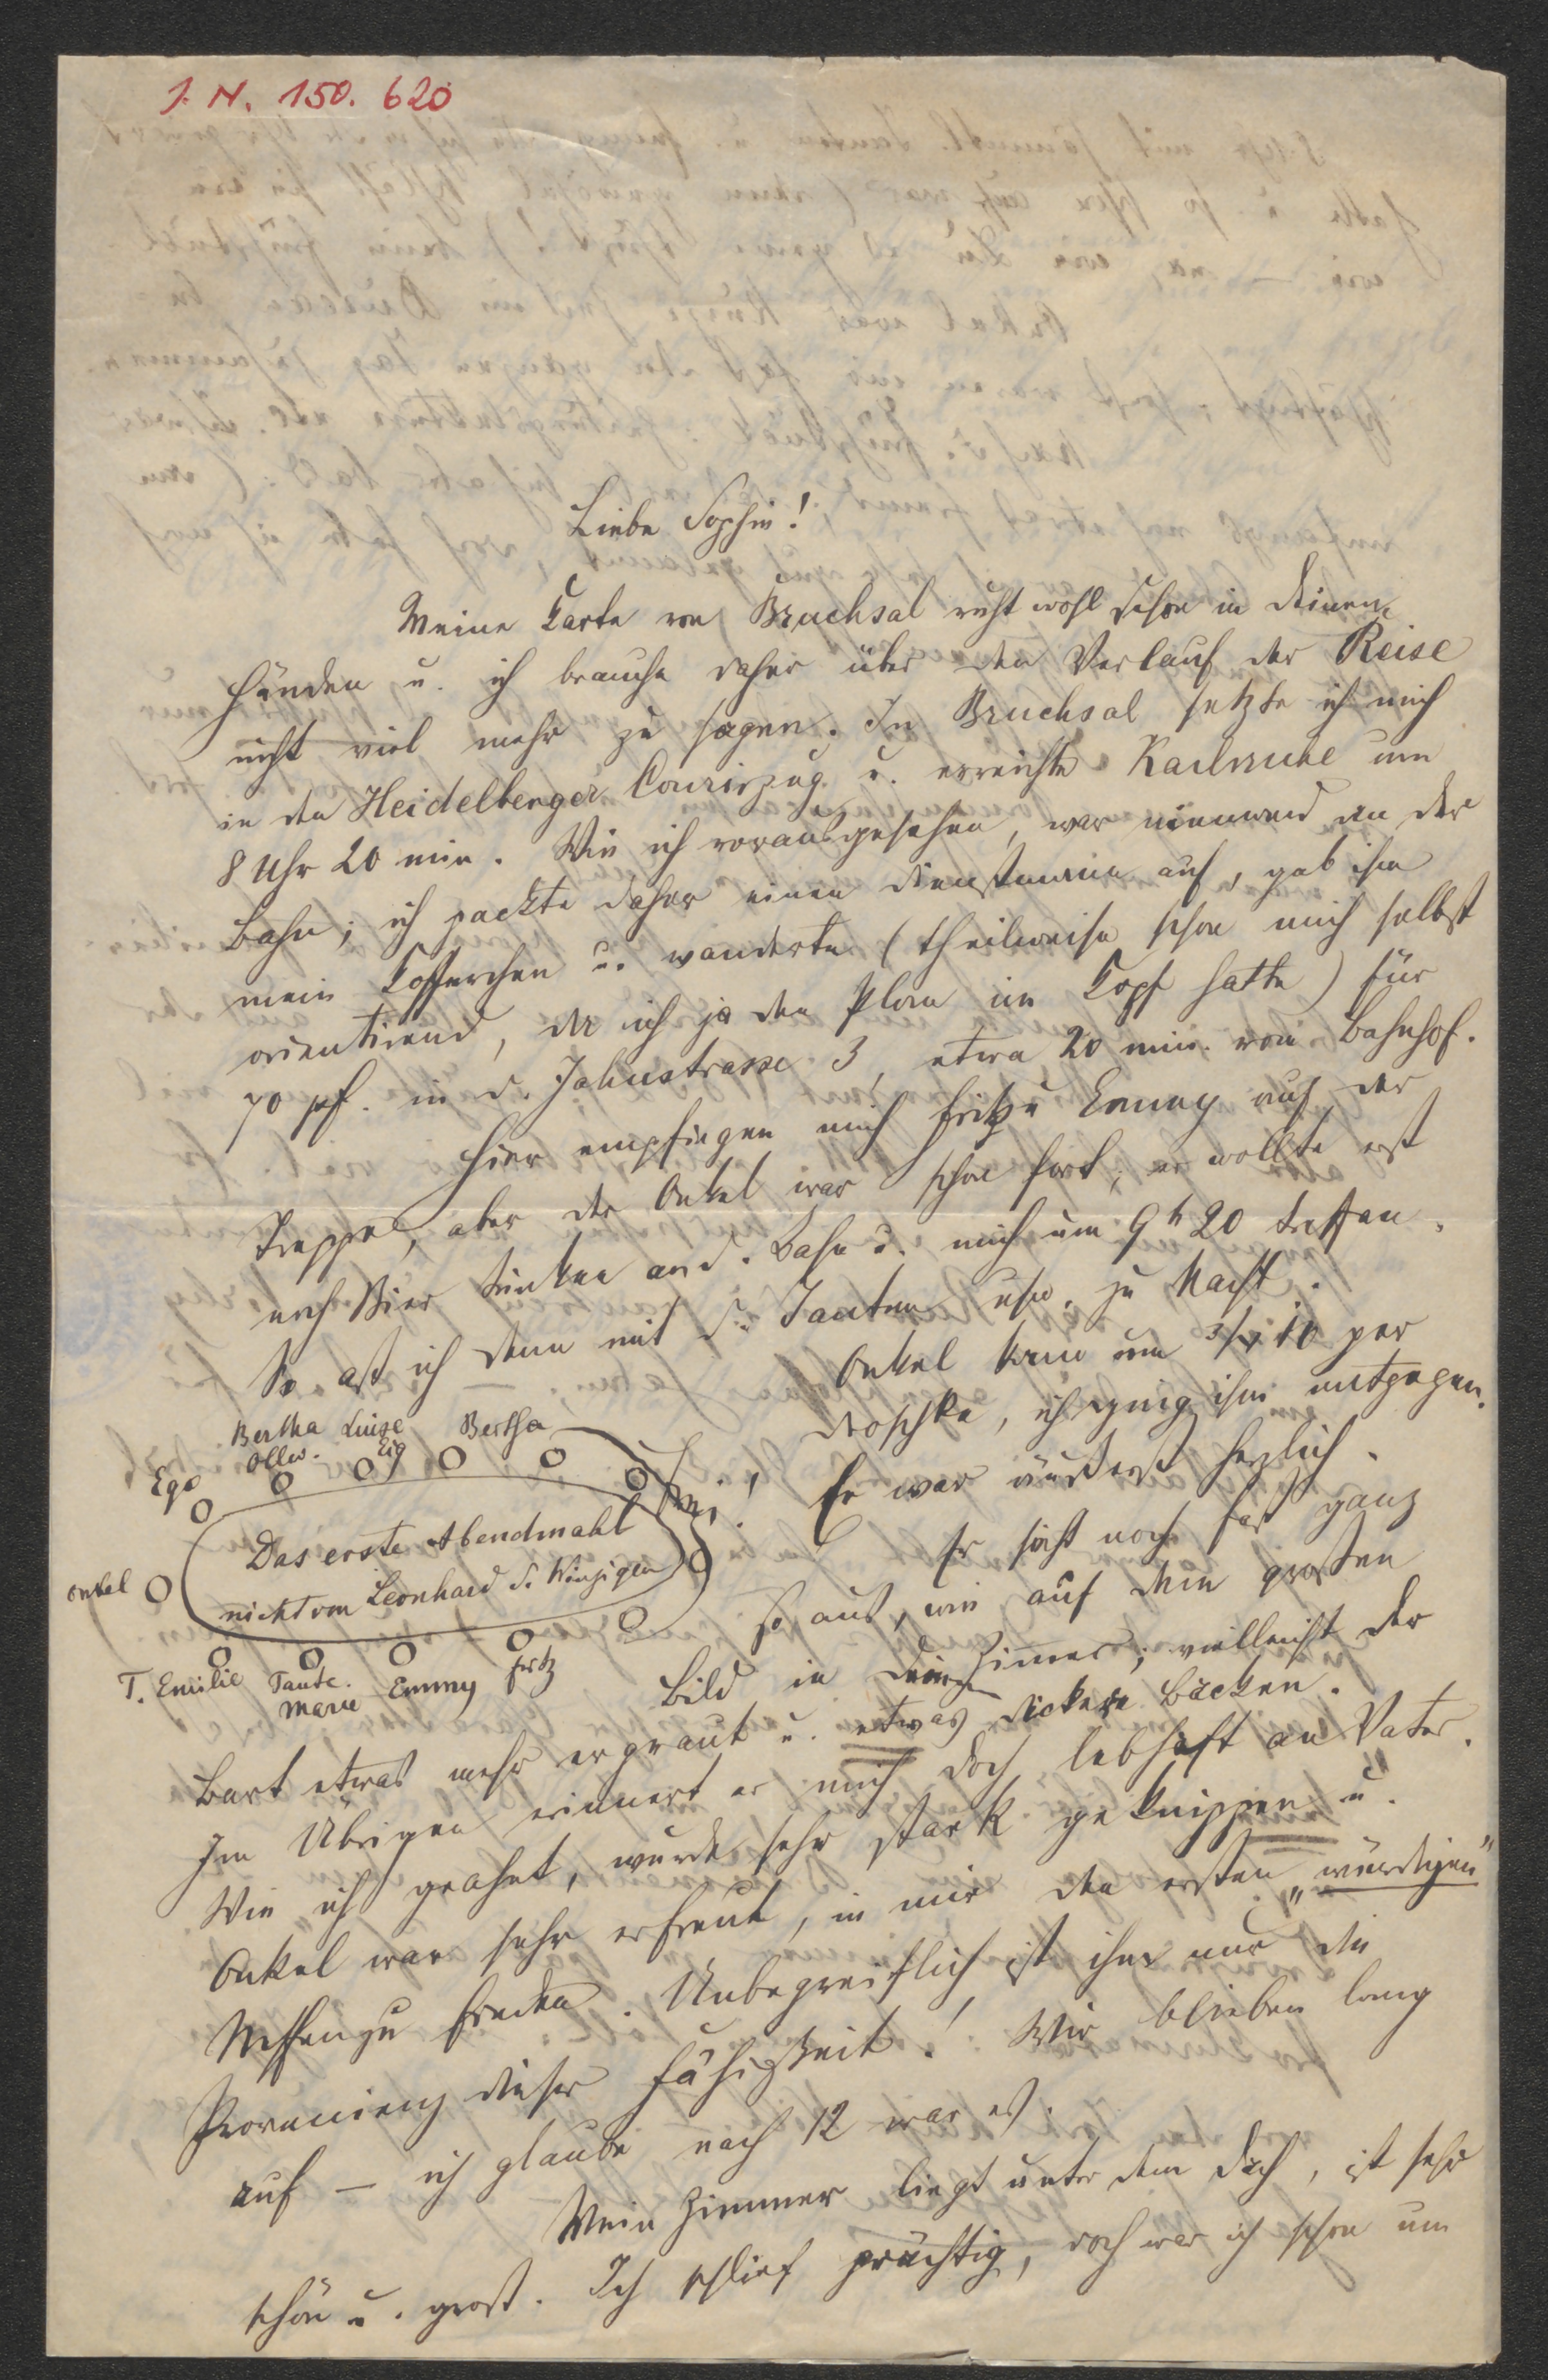 J. N. 150. 620
Liebe Sophie!
Meine Karte von Bruchsal ruht wohl schon in Deinen
Händen u. ich brauche daher über den Verlauf der Reise
nicht viel mehr zu sagen. In Bruchsal setzte ich mich
in den Heidelberger Courirzug u. erreichte Karlsruhe um
8 Uhr 20 min. Wie ich vorausgesehen, war niemand an der
Bahn; ich packte daher einen Dienstmann auf, gab ihm
mein Kofferchen u. wanderte (theilweise schon mich selbst
orientirend, da ich ja den Plan im Kopf hatte) für
70 pf. in d. Jahnstrasse 3, etwa 20 min. vom Bahnhof.
Hier empfingen mich Fritz u Emmy auf der
Treppe, aber der Onkel war schon fort; er wollte erst
noch Bier trinken an d. Bahn u. mich um 9h 20 treffen.
So aß ich denn mit d. Tanten usw. zu Nacht.
Onkel kam um 3/4 10 per
Droschke, ich ging ihm entgegen.
Er war äußerst herzlich.
Er sieht noch fast ganz
so aus, wie auf dem großen
Bild in Deinem Zimmer; vielleicht der
Bertha Luise Bertha
Ollw. Eig
Ego
Das erste Abendmahl
nicht von Leonhard d. Winzigen
Onkel
T. Emilie Tante Marie Emmy Fritz
Bart etwas mehr ergraut u. etwas dickere Backen.
Im Übrigen erinnert er mich doch lebhaft an Vater.
Wie ich geahnt, wurde sehr stark geknippen u.
Onkel war sehr erfreut, in mir den ersten „würdigen"
Neffen zu finden. Unbegreiflich ist ihm nur die
Provenienz dieser Fähigkeit! Wir blieben lang
auf – ich glaube nach 12 war es.
Mein Zimmer liegt unter dem Dach, ist sehr
schön u. groß. Ich schlief prächtig, doch war ich schon um